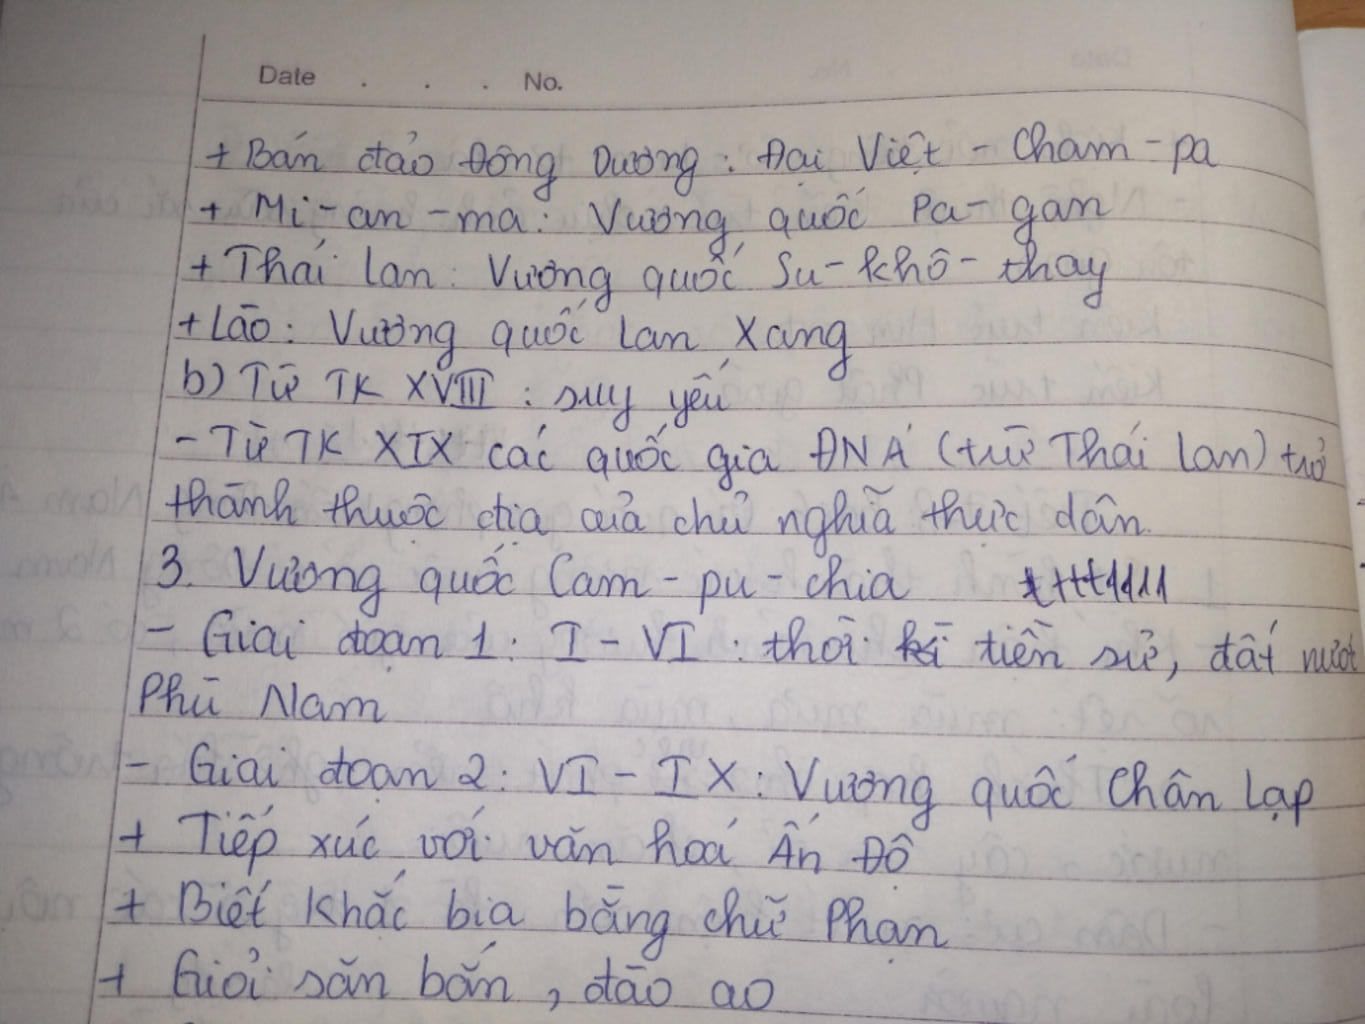 Date . . . No.
+ Bán đảo Đông Dương : Đai Việt - Cham - pa
+ Mi - an - ma : Vương quốc Pa - gan
+ Thái lan : Vương quốc Su - khô - thay
+ Lào : Vương quốc Lan Xang
b) Từ TK XVIII : suy yếu
- Từ TK XIX các quốc gia ĐNÁ (trừ Thái lan) trở
thành thuộc địa của chủ nghĩa thực dân.
3. Vương quốc Cam - pu - chia
- Giai đoạn 1 : I - VI : thời kì tiền sử, đất nước
Phù Nam
- Giai đoạn 2 : VI - IX : Vương quốc Chân Lạp
+ Tiếp xúc với văn hoá Ấn Độ
+ Biết khắc bia bằng chữ Phạn
+ Giỏi săn bắn, đào ao